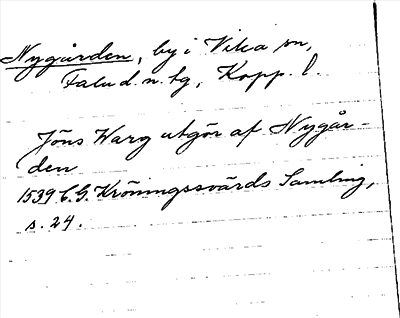 Nygården, by i Vika sn,
Falu d. n. tg, Kopp. l.
Jöns Warg utgör af Nygår-
den
1539 C.G. Kröningssvärds Samling,
s. 24.